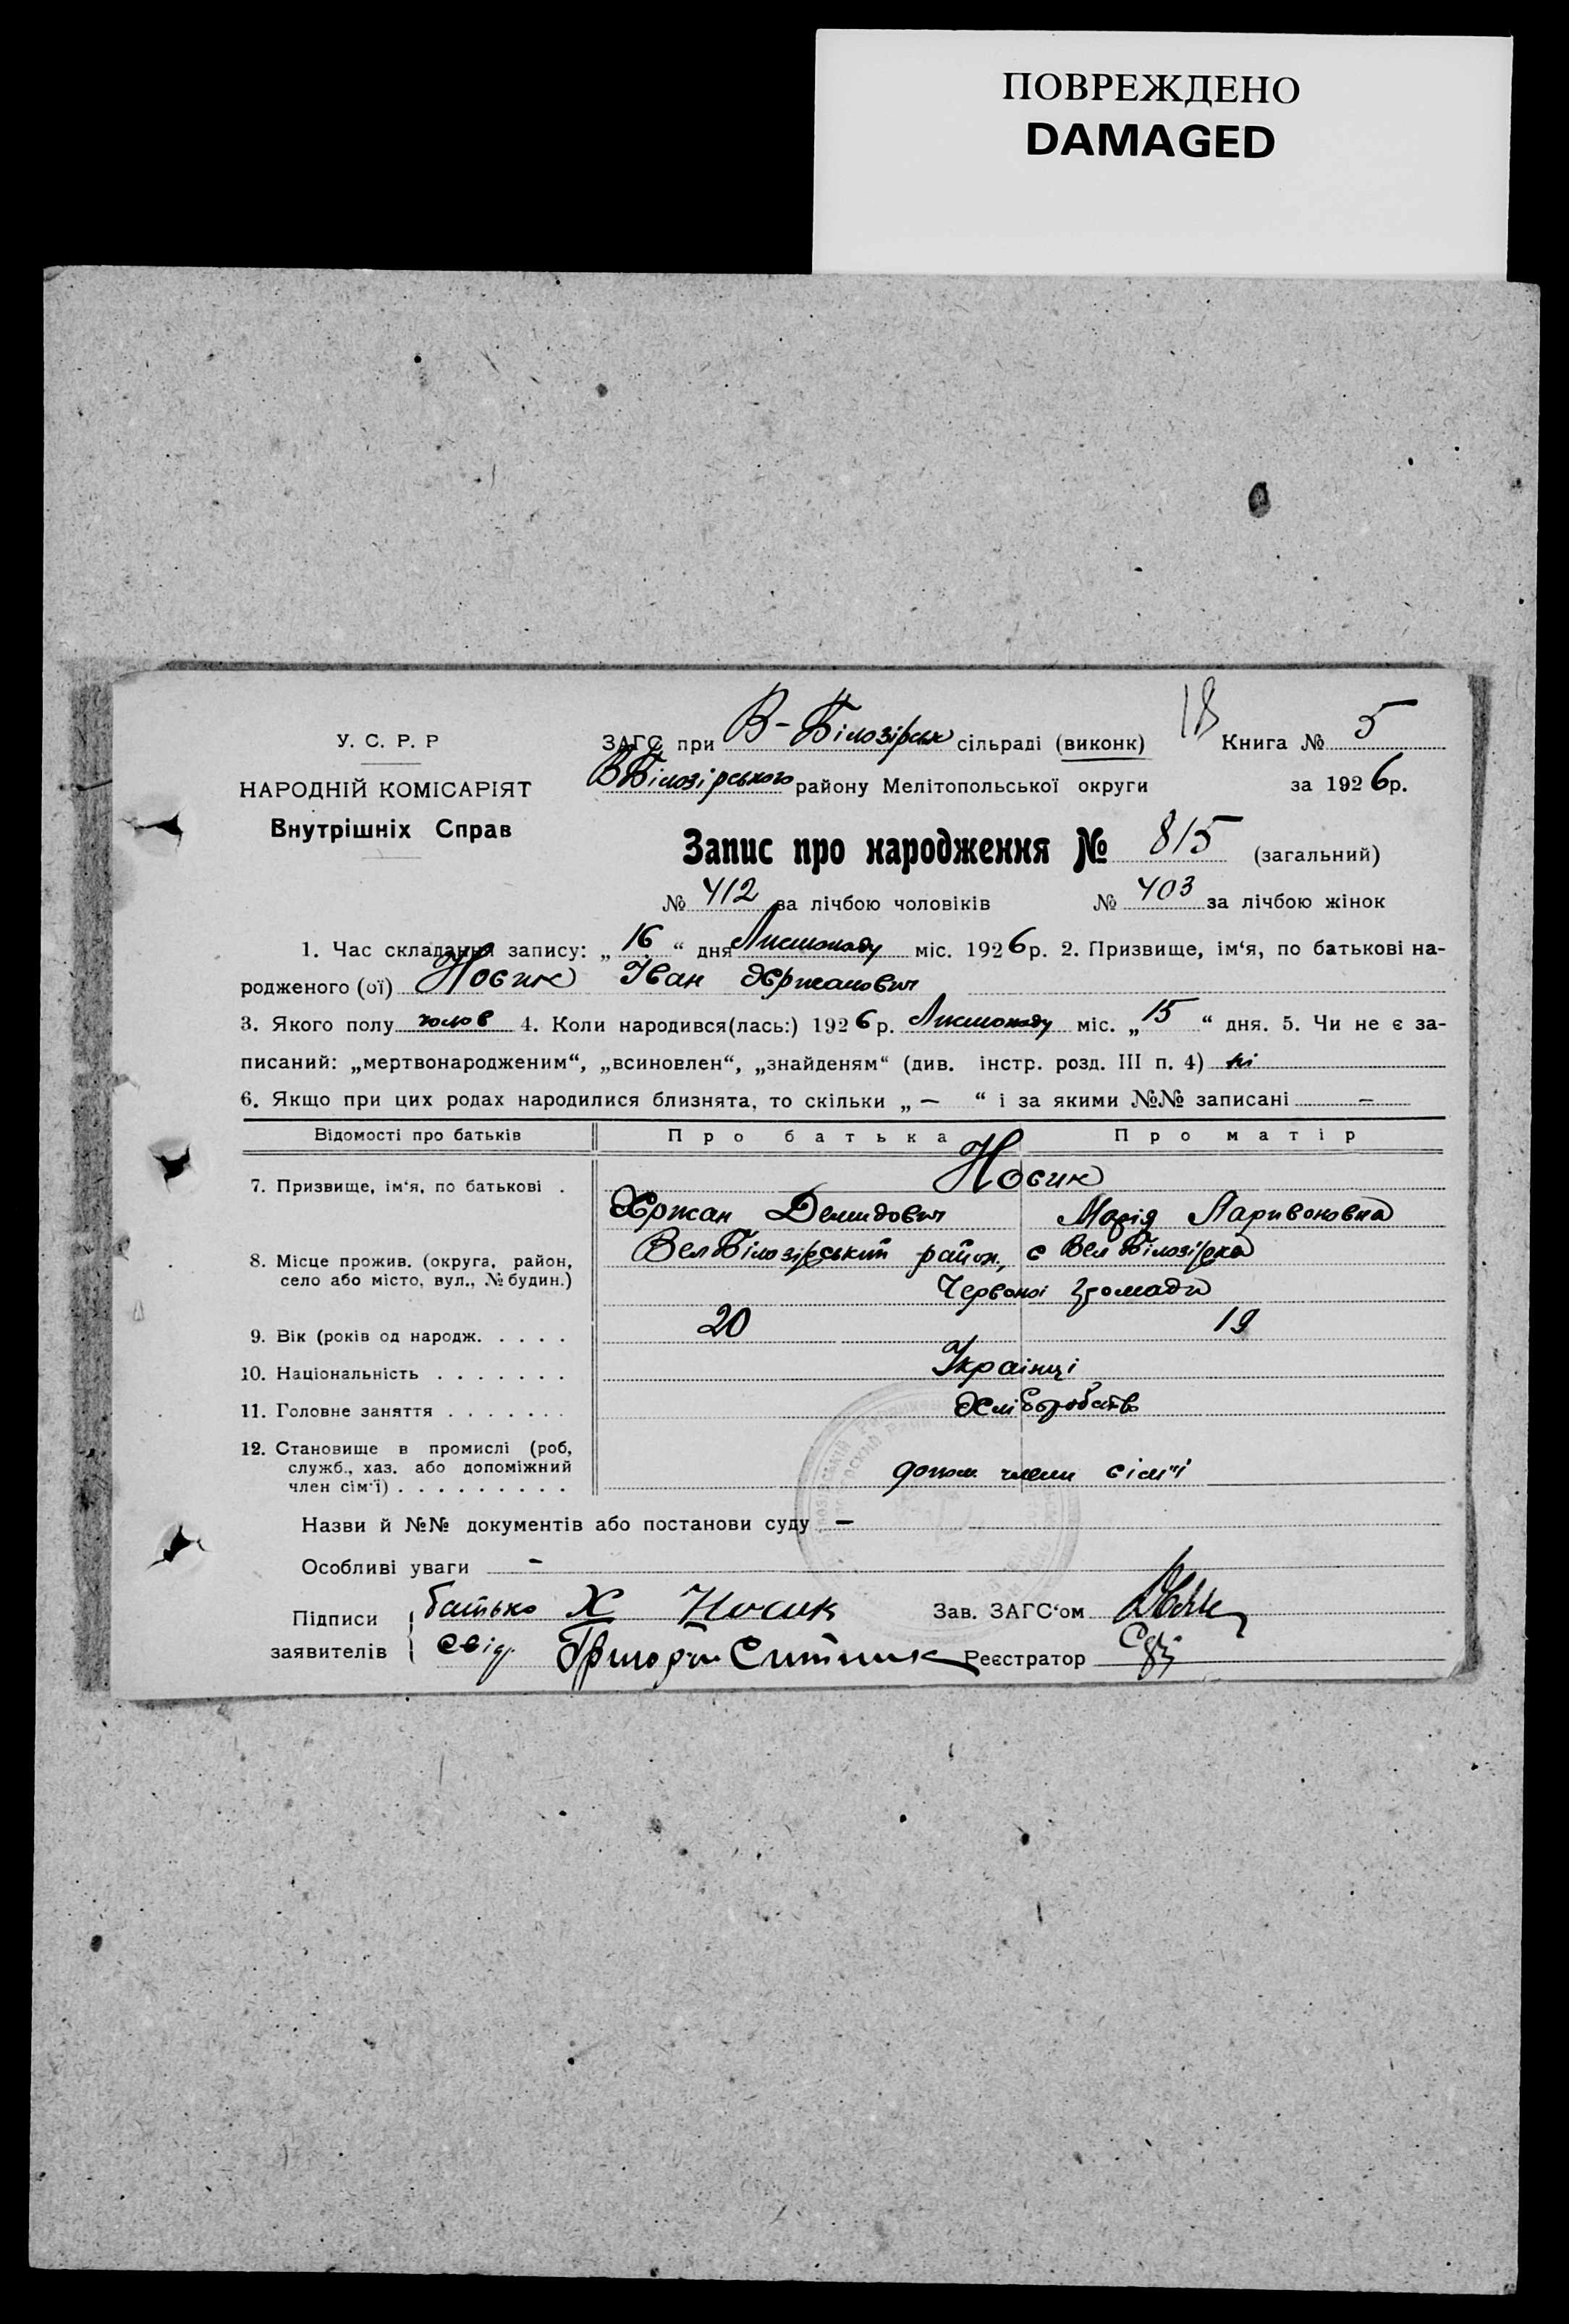 ПОВРЕЖДЕНО
DAMAGED
18
У. С. Р. Р
НАРОДНІЙ КОМІСАРІЯТ
Внутрішніх Справ
ЗАГС при В-Білозірськ сільраді (виконк) Книга № 5
ВБілозірського району Мелітопольської округи за 1926р.
Запис про народження № 815 (загальний)
№ 412 за лічбою чоловіків № 403 за лічбою жінок
1. Час складання запису: „16“ дня Листопаду міс. 1926р. 2. Призвище, ім‘я, по батькові на-
родженого (ої) Носик Іван Хржанович
3. Якого полу чолов 4. Коли народився(лась:) 1926р. Листопаду міс. „15“ дня. 5. Чи не є за-
писаний: „мертвонародженим“, „всиновлен“, „знайденям“ (див. інстр. розд. III п. 4) ні
6. Якщо при цих родах народилися близнята, то скільки „—“ і за якими №№ записані —
Відомості про батьків Про батька Про матір
7. Призвище, ім‘я, по батькові . Носик
Хржан Демидович Марія Ларивоновна
8. Місце прожив. (округа, район, село або місто, вул., № будин.) ВелБілозірський район, с Вел Білозірка
Червоної громади
9. Вік (років од народж. . . . . 20 19
10. Національність . . . . . . . Українці
11. Головне заняття . . . . . . . Хліборобство
12. Становище в промислі (роб, служб., хаз. або допоміжний член сім‘ї) . . . . . . . . . допом. члени сім"і
Назви й №№ документів або постанови суду —
Особливі уваги —
Підписи заявителів
батько Х Носик Зав. ЗАГС‘ом
свід. Григорій Ситник Реєстратор